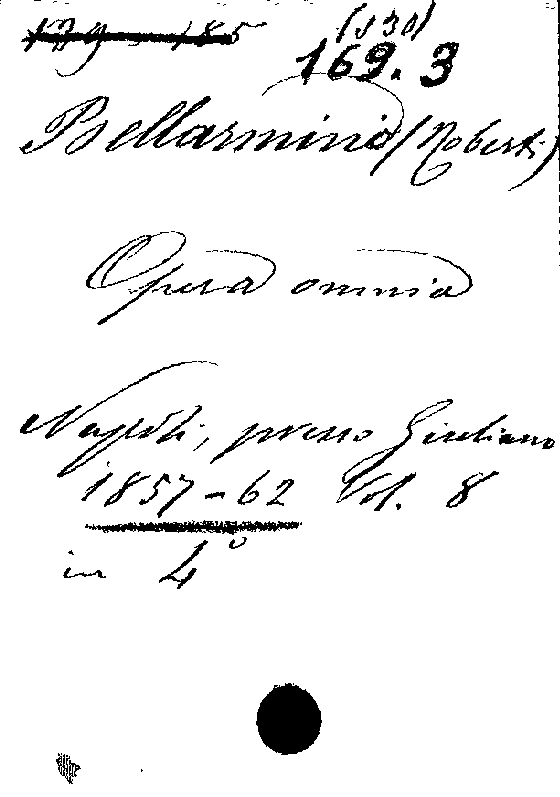 179 - 185
(s 30)
169. 3
Bellarmino (Roberti)
Opera omnia
Napoli, presso Giuliano
1857-62 Vol. 8
in 4°